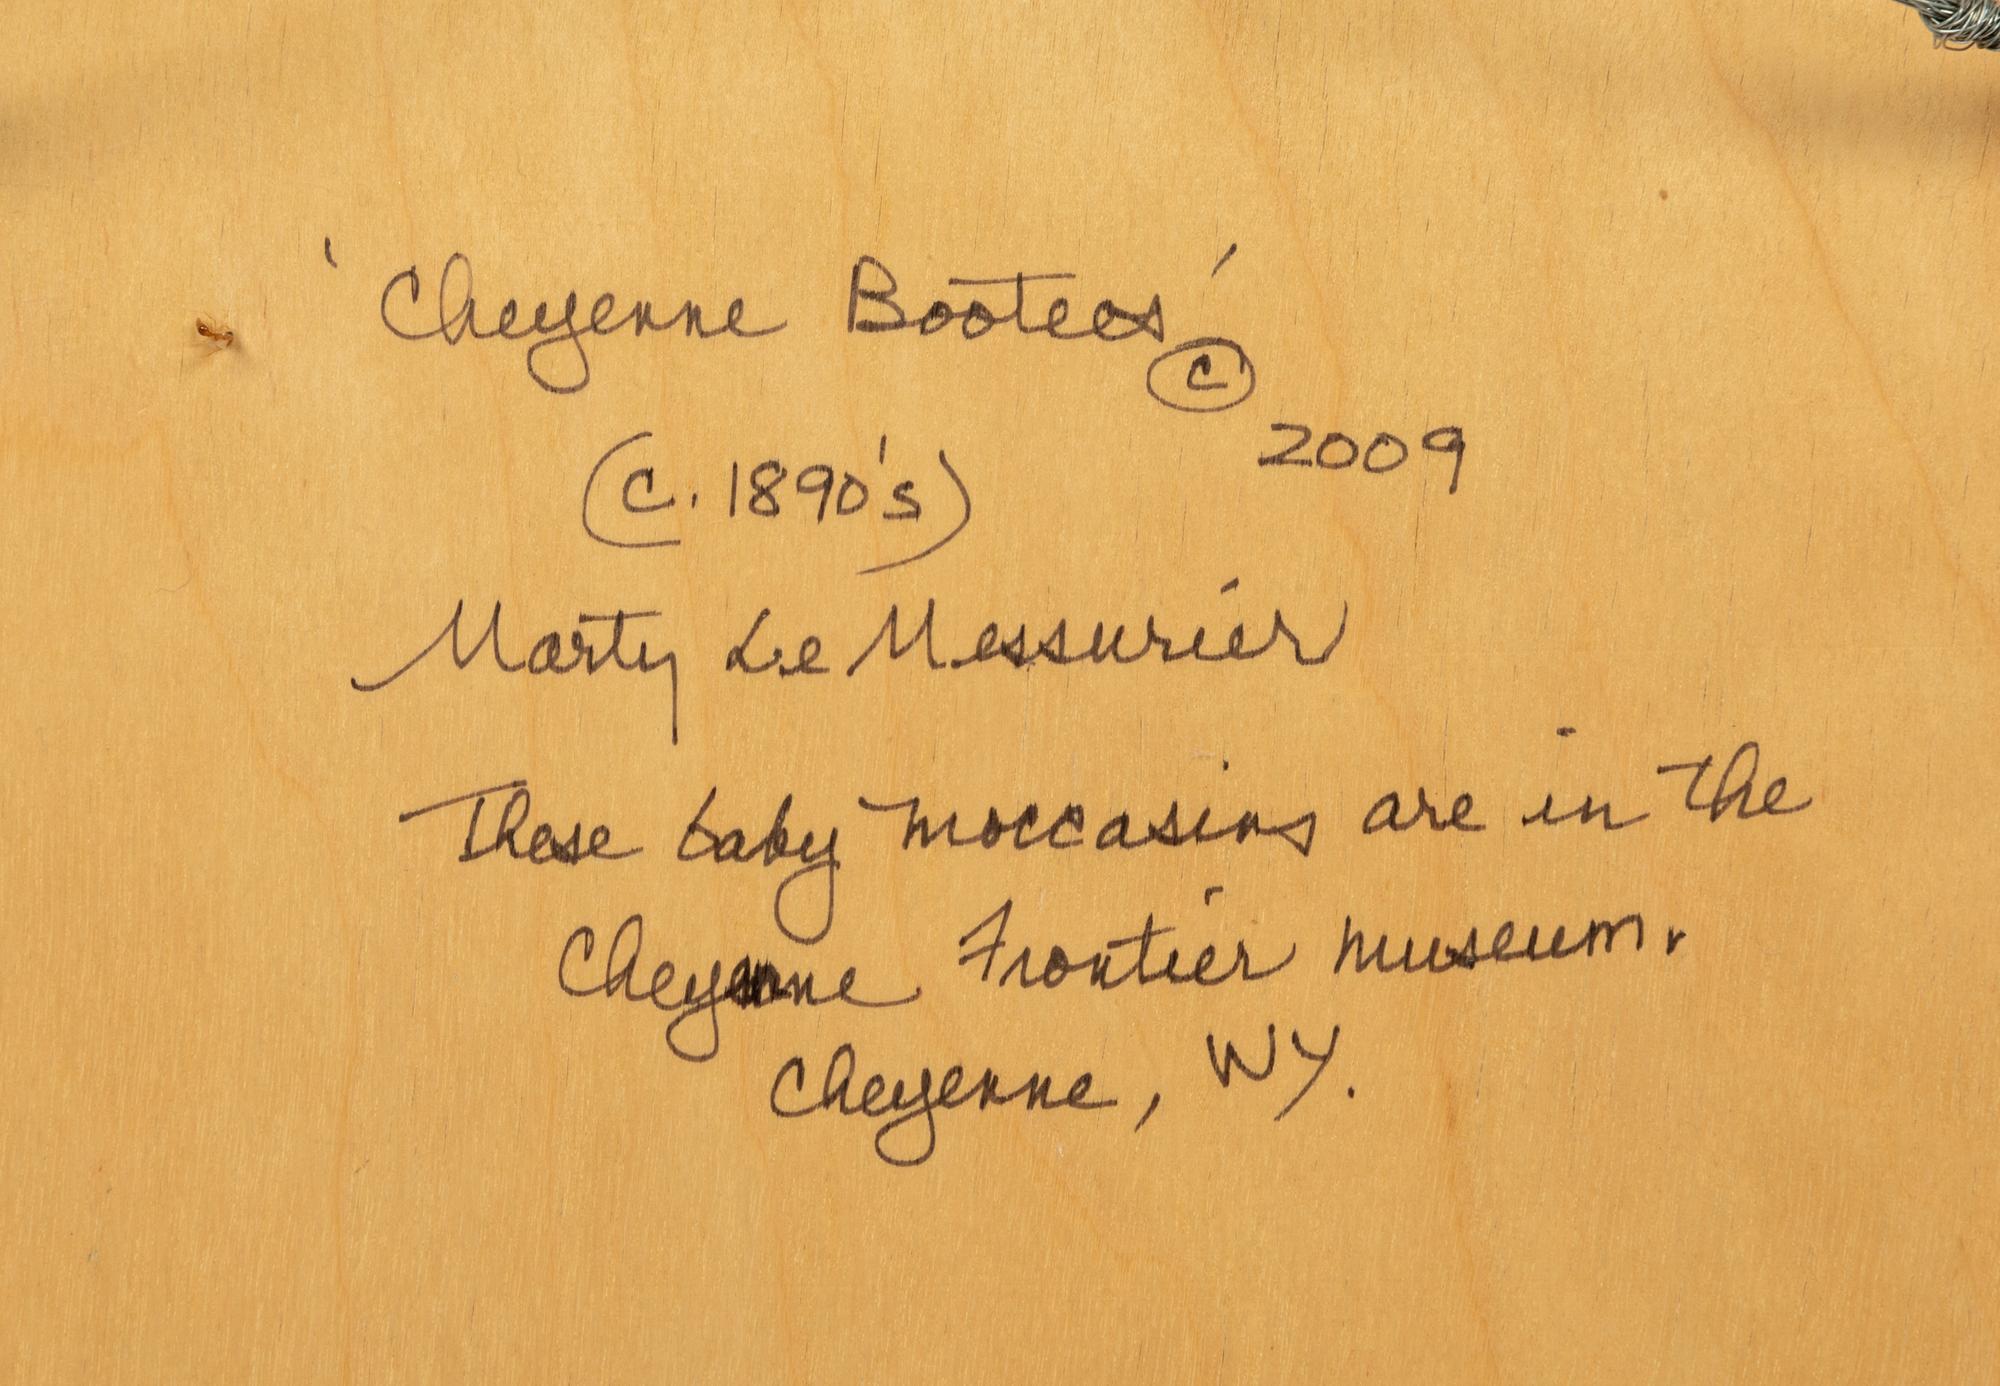 'Cheyenne Bootees'
© 2009
(c. 1890's)
Marty Le Messurier
These baby moccasins are in the
Cheyenne Frontier museum.
Cheyenne, WY.